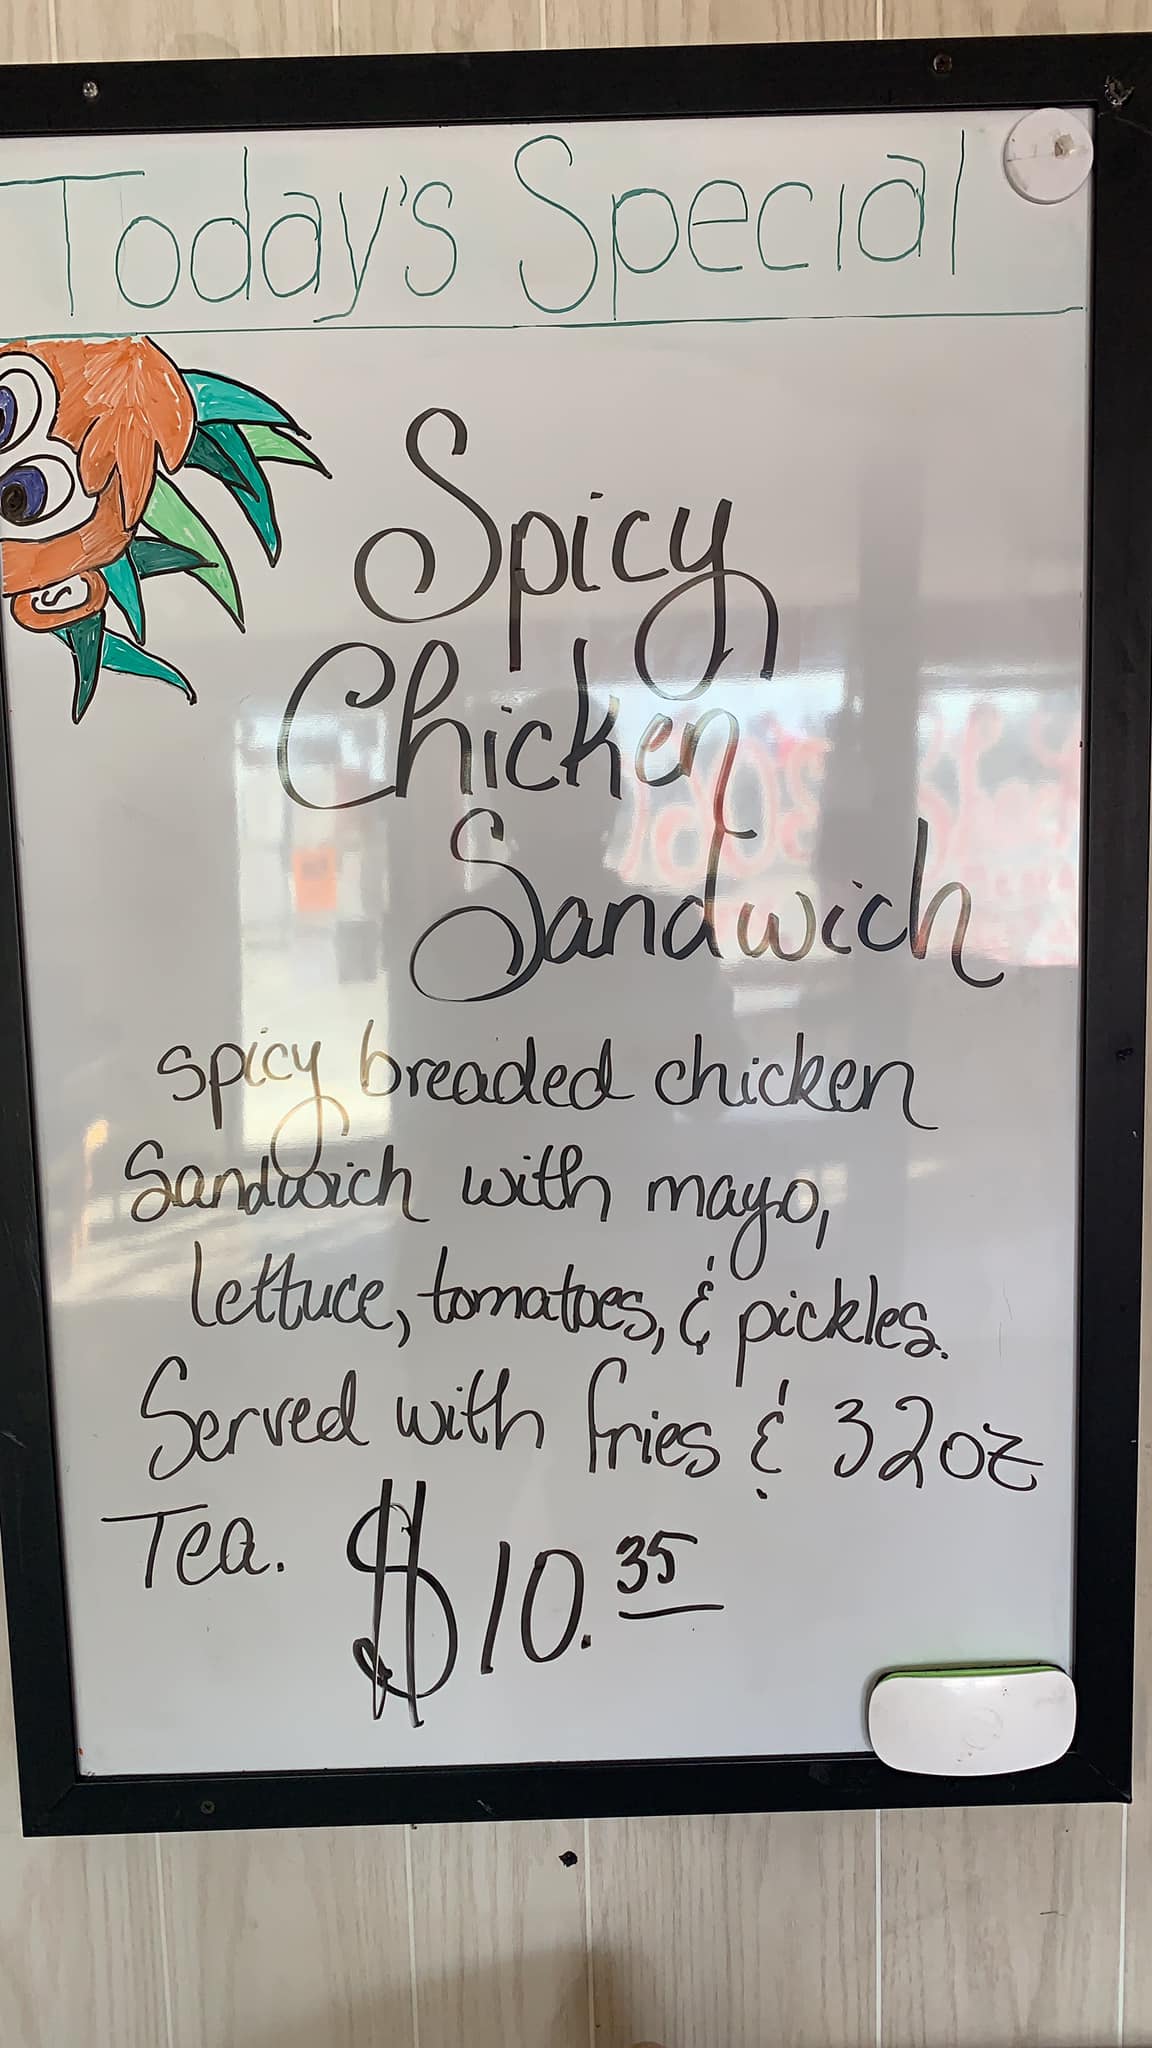 Today's Special
Spicy
Chicken
Sandwich
spicy breaded chicken
Sandwich with mayo,
lettuce, tomatoes, & pickles.
Served with fries & 32oz
Tea. $10.35